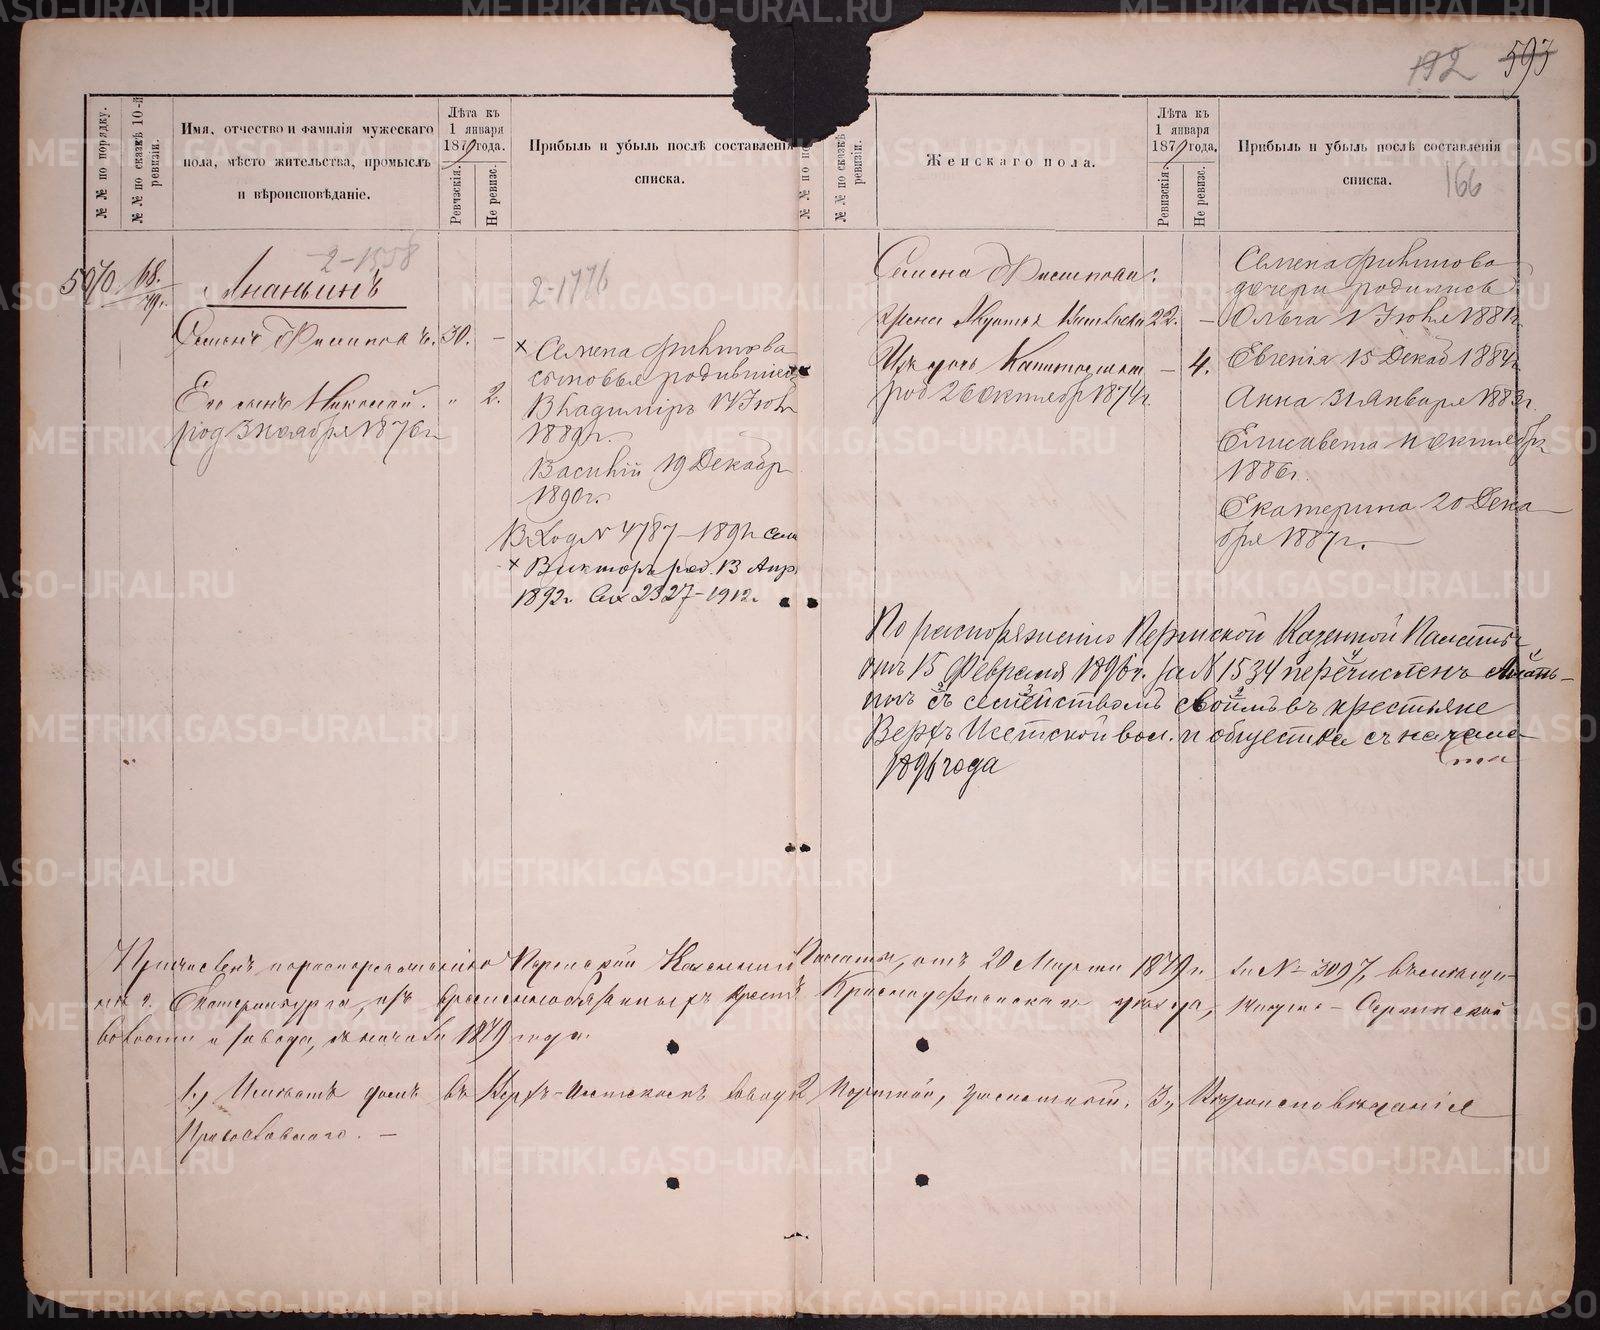 192 593
№№ по порядку.
№№ по сказкѣ 10-й ревизіи.
Имя, отчество и фамилія мужескаго
пола, мѣсто жительства, промыслъ
и вѣроисповѣданіе.
Лѣта къ
1 января
1879 года.
Ревизскія.
Не ревизс.
Прибыль и убыль послѣ составленія
списка.
№№ по
по сказкѣ
ревизіи.
Женскаго пола.
Лѣта къ
1 января
1879 года.
Ревизскія.
Не ревизс.
Прибыль и убыль послѣ составленія
списка.
166
2-1558
5070. 68./79.
Ананьинъ
Семенъ Филиповъ. 30. -
Его сынъ Николай. " 2.
род 3 ноября 1876 г
2-1776
× Семена Филипова
сыновья родились
Владиміръ 14 Іюл
1889 г.
Василій 19 Декабр
1890 г.
Вход № 4787-1891 г
× Викторъ род. 13 Апр.
1892 г. 2327-1912 г.
Семена Филипова:
жена 22. -
Ихъ дочь Капитолина - 4.
род 26 октябр 1874 г.
Семена Филипова
дочери родились
Ольга 1 Іюля 1881 г.
Евгенія 15 Декаб 1884 г
Анна 31 Января 1883 г.
Елисавета 11 октябр
1886 г.
Екатерина 20 Дека
бря 1887 г.
По распоряженію Пермской Казенной Палаты
отъ 15 Февраля 1896 г. за № 1534 перечисленъ Анань-
инъ съ семействомъ своимъ въ крестьяне
Верхъ Исетской вол. и общества съ начала
1896 года
Причисленъ по распоряженію Пермской Казенной Палаты, отъ 20 Марта 1879 г. за № 3097, въ мѣща-
не г. Екатеринбурга, изъ временнообязанныхъ крест Красноуфимскаго уѣзда, Нижне-Сергинской
волости и завода, съ начала 1879 года
1., Имѣетъ домъ въ Верхъ-Исетскомъ заводѣ 2, Портной, 3., Вѣроисповѣданія
Православнаго. -
METRIKI.GASO-URAL.RU